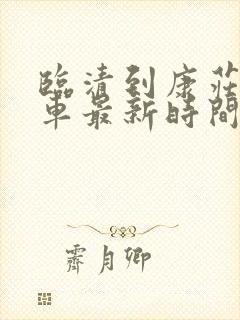 臨清到康莊
車最新時間
霽月卿